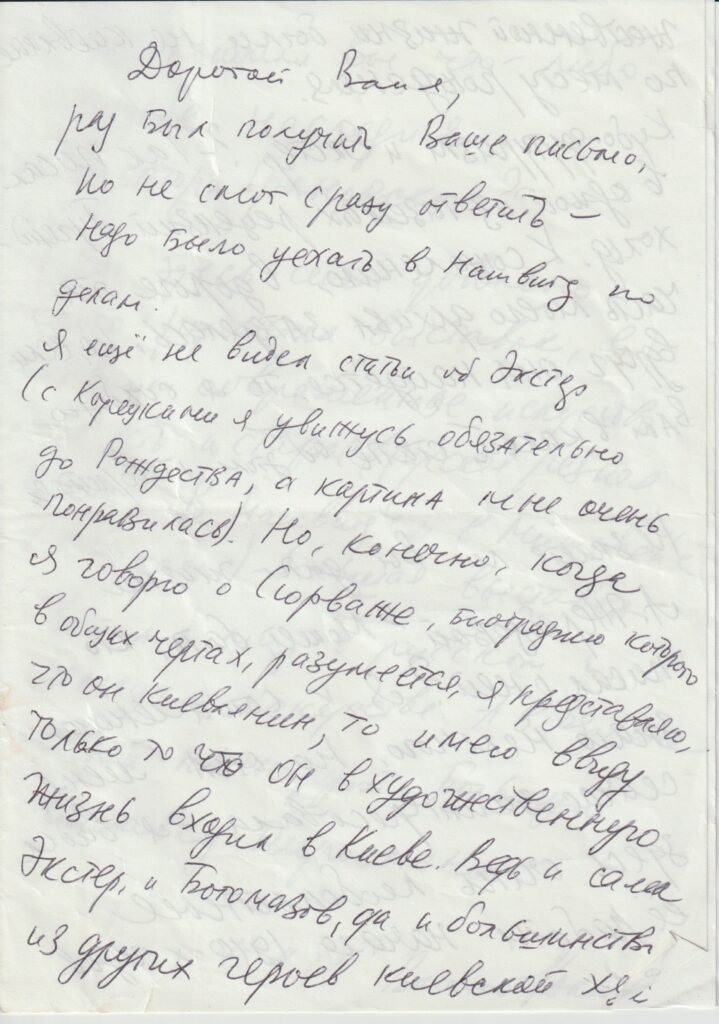 Дорогой Ваня,
рад был получить Ваше письмо,
но не смог сразу ответить –
надо было уехать в Нашвилл по
делам.
Я ещё не видел статьи об Экстер
(с Корецкими я увижусь обязательно
до Рождества, а картина мне очень
понравилась). Но, конечно, когда
я говорю о Сюрваже, биографию которого
в общих чертах, разумеется, я представляю,
что он киевлянин, то имею ввиду
только то что он в художественную
жизнь входил в Киеве. Ведь и сама
Экстер, и Богомазов, да и большинство
из других героев киевской